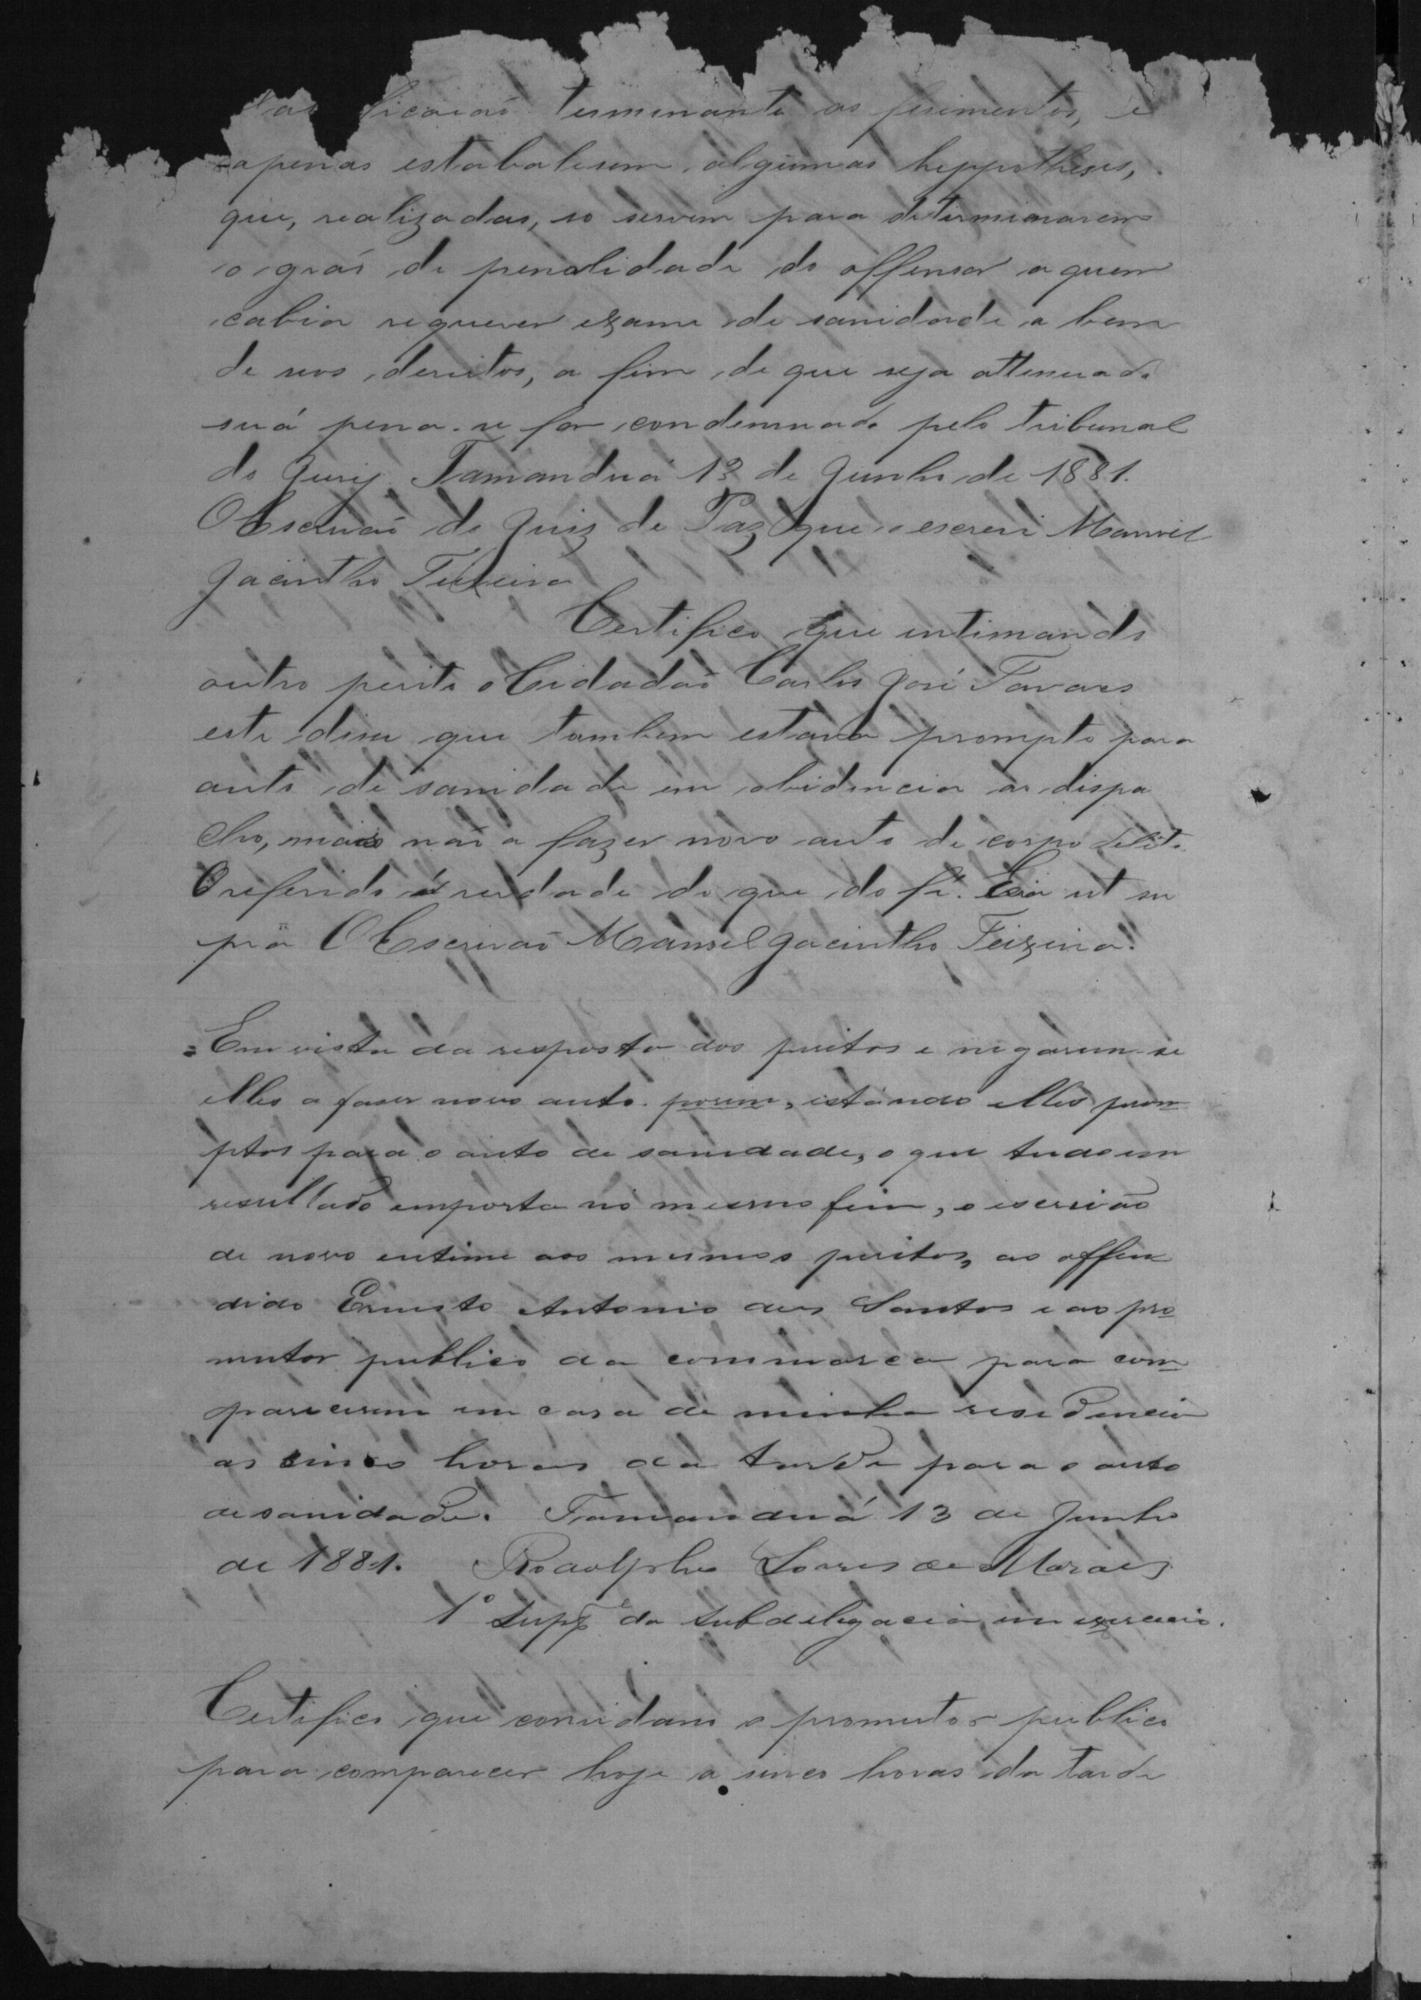 terminante os ferimentos, e
apenas estabalesem algumas hyppotheses,
que, realizadas, so servem para determinarem
o gráo de penalidade do offensor a quem
cabia requerer exame de sanidade a bem
de seos dereitos, a fim de que seja attenuado
suá pena se for condemnado pelo tribunal
do Jury. Tamanduá 13 de Junho de 1881.
O Escrivaõ do Juiz de Paz que o escrevi Manoel
Jacintho Teixeira
Certifico que intimando
outro perito o Cidadaõ Carlos José Tavares
este disse que tambem estava prompto para
auto de sanidade em obidencia ao dispa
cho, mais naõ a fazer novo auto de corpo delito.
O referido é verdade do que dou fé. Era ut su
prã O Escrivaõ Manoel Jacintho Teixeira.
Em vista da resposta dos peritos e negarem-se
elles a faser novo auto porem, estando elles prom
ptos para o auto de sanidade, o que tudo em
resultado emporta no mesmo fim, o escrivão
de novo entime aos mesmos peritos, ao offen
dido Ernesto Antonio dos Santos e ao pro
mutor publico da commarca para com
parecerem em casa de minha residencia
as cinco horas da tarde para o auto
de sanidade. Tamanduá 13 de Junho
de 1881. Rodolpho Torres de Moraes
1º Supe da subdelegacia em exercicio.
Certifico que convidam o promutor publico
para comparecer hoje a sinco horas da tarde